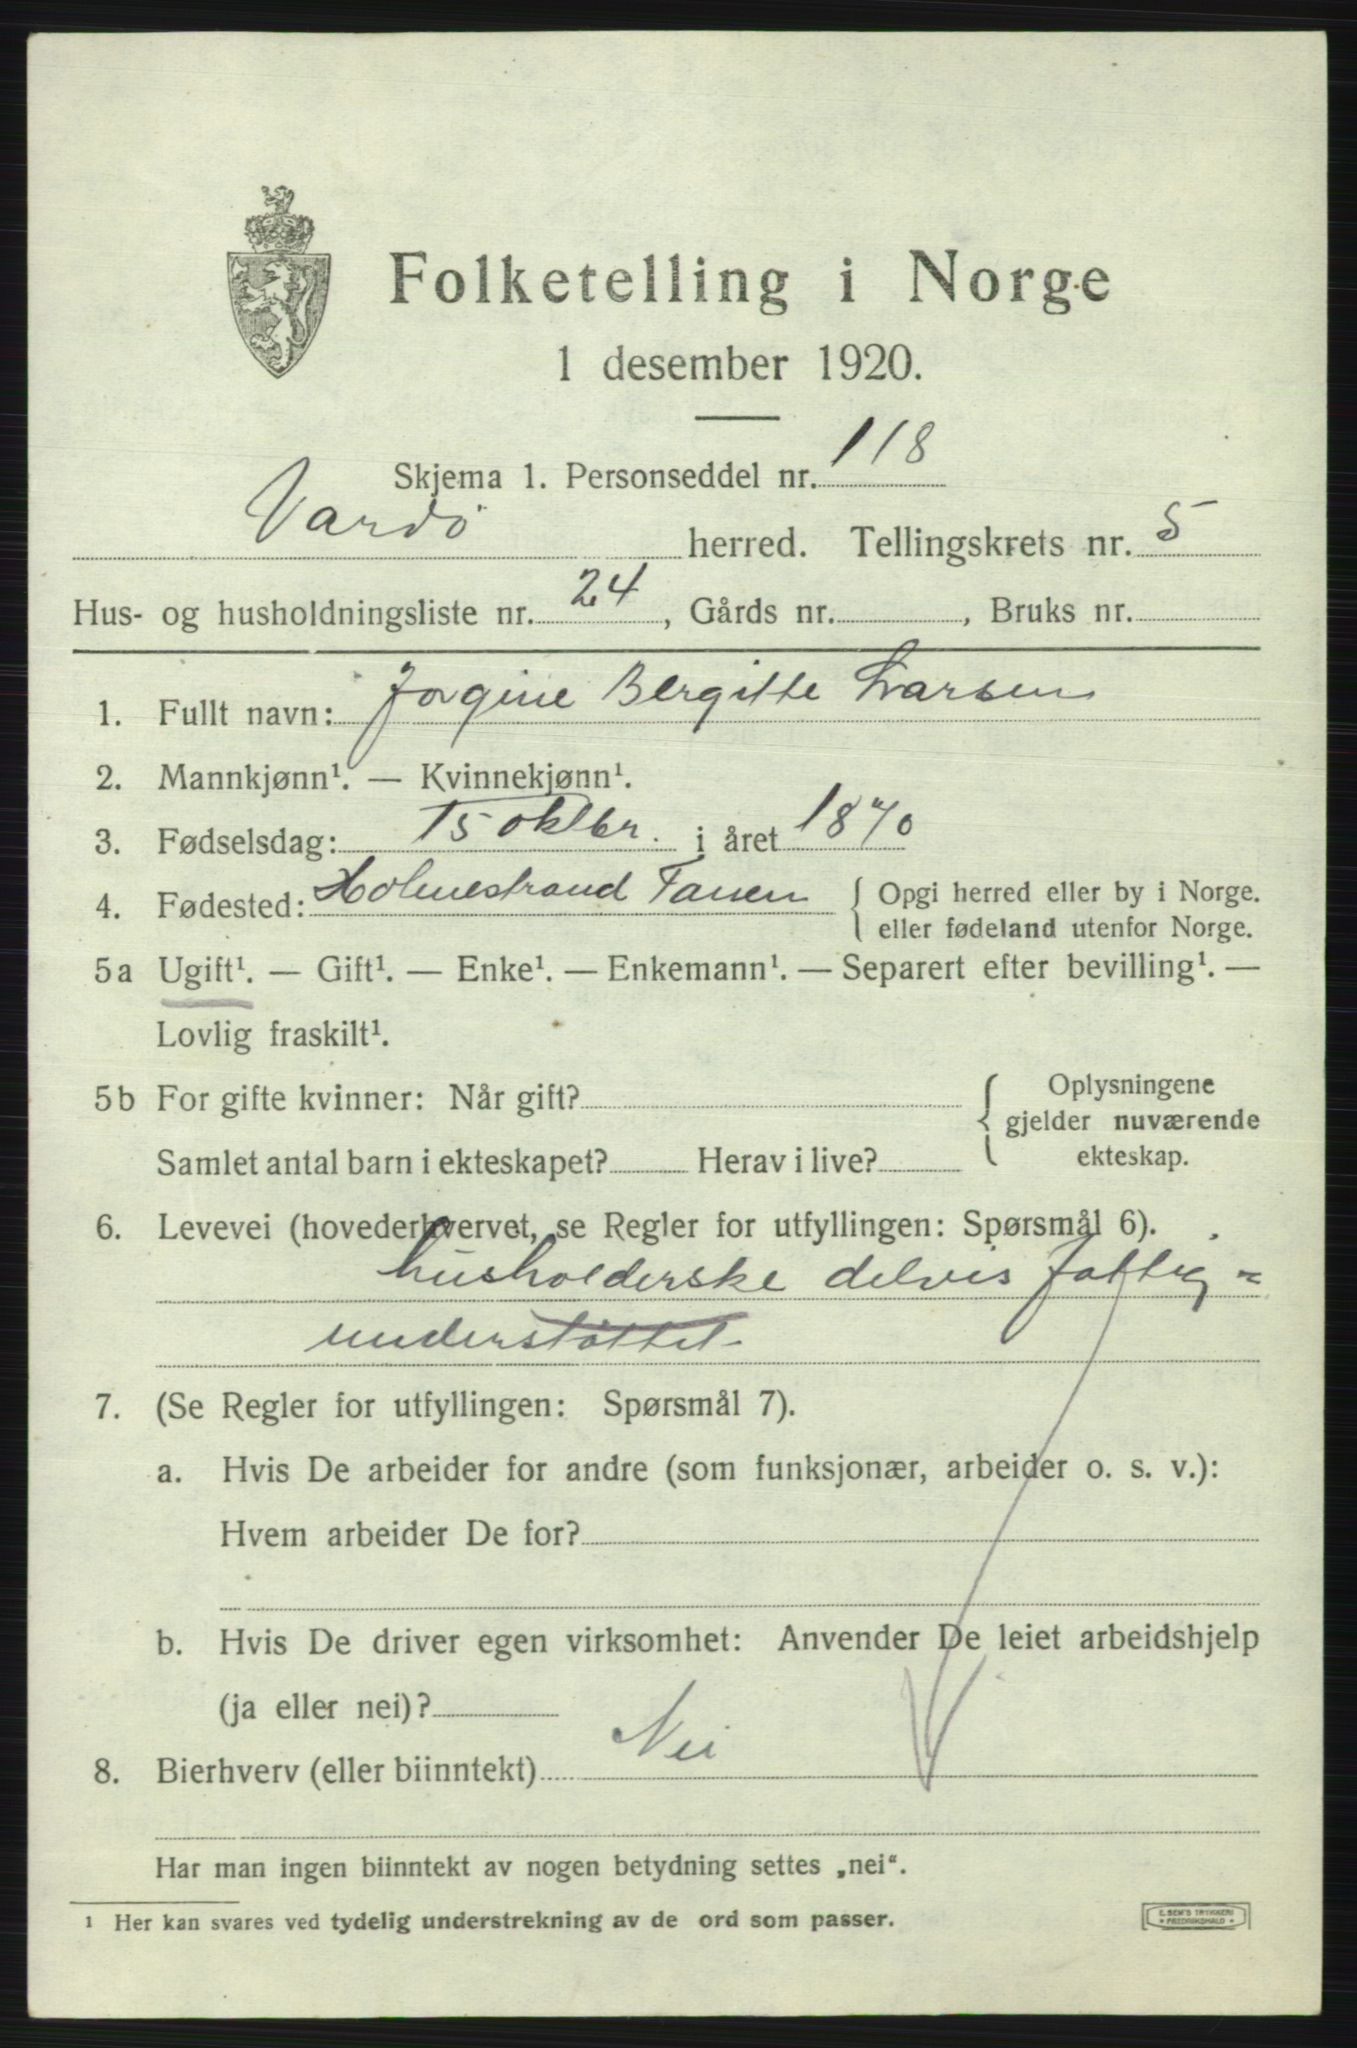 Folketelling i Norge
1 desember 1920.
Skjema 1. Personseddel nr. 118
Vardö herred. Tellingskrets nr. 5
Hus- og husholdningsliste nr. 24, Gårds nr. , Bruks nr.
1. Fullt navn: Jorgine Bergitte Larsen
2. Mannkjønn¹. — Kvinnekjønn¹.
3. Fødselsdag: 15 oktbr. i året 1870
4. Fødested: Holmestrand Tanen { Opgi herred eller by i Norge.
eller fødeland utenfor Norge.
5a Ugift¹. — Gift¹. — Enke¹. — Enkemann¹. — Separert efter bevilling¹. —
Lovlig fraskilt¹.
5b For gifte kvinner: Når gift? { Oplysningene
gjelder nuværende
Samlet antal barn i ekteskapet? Herav i live? ekteskap.
6. Levevei (hovederhvervet, se Regler for utfyllingen: Spørsmål 6).
husholderske delvis fattig=
understøttet
7. (Se Regler for utfyllingen: Spørsmål 7).
a. Hvis De arbeider for andre (som funksjonær, arbeider o. s. v.):
Hvem arbeider De for?
b. Hvis De driver egen virksomhet: Anvender De leiet arbeidshjelp
(ja eller nei)?
8. Bierhverv (eller biinntekt) Nei
Har man ingen biinntekt av nogen betydning settes „nei“.
¹ Her kan svares ved tydelig understrekning av de ord som passer.
E. SEM'S TRYKKERI
• FREDRIKSHALD •